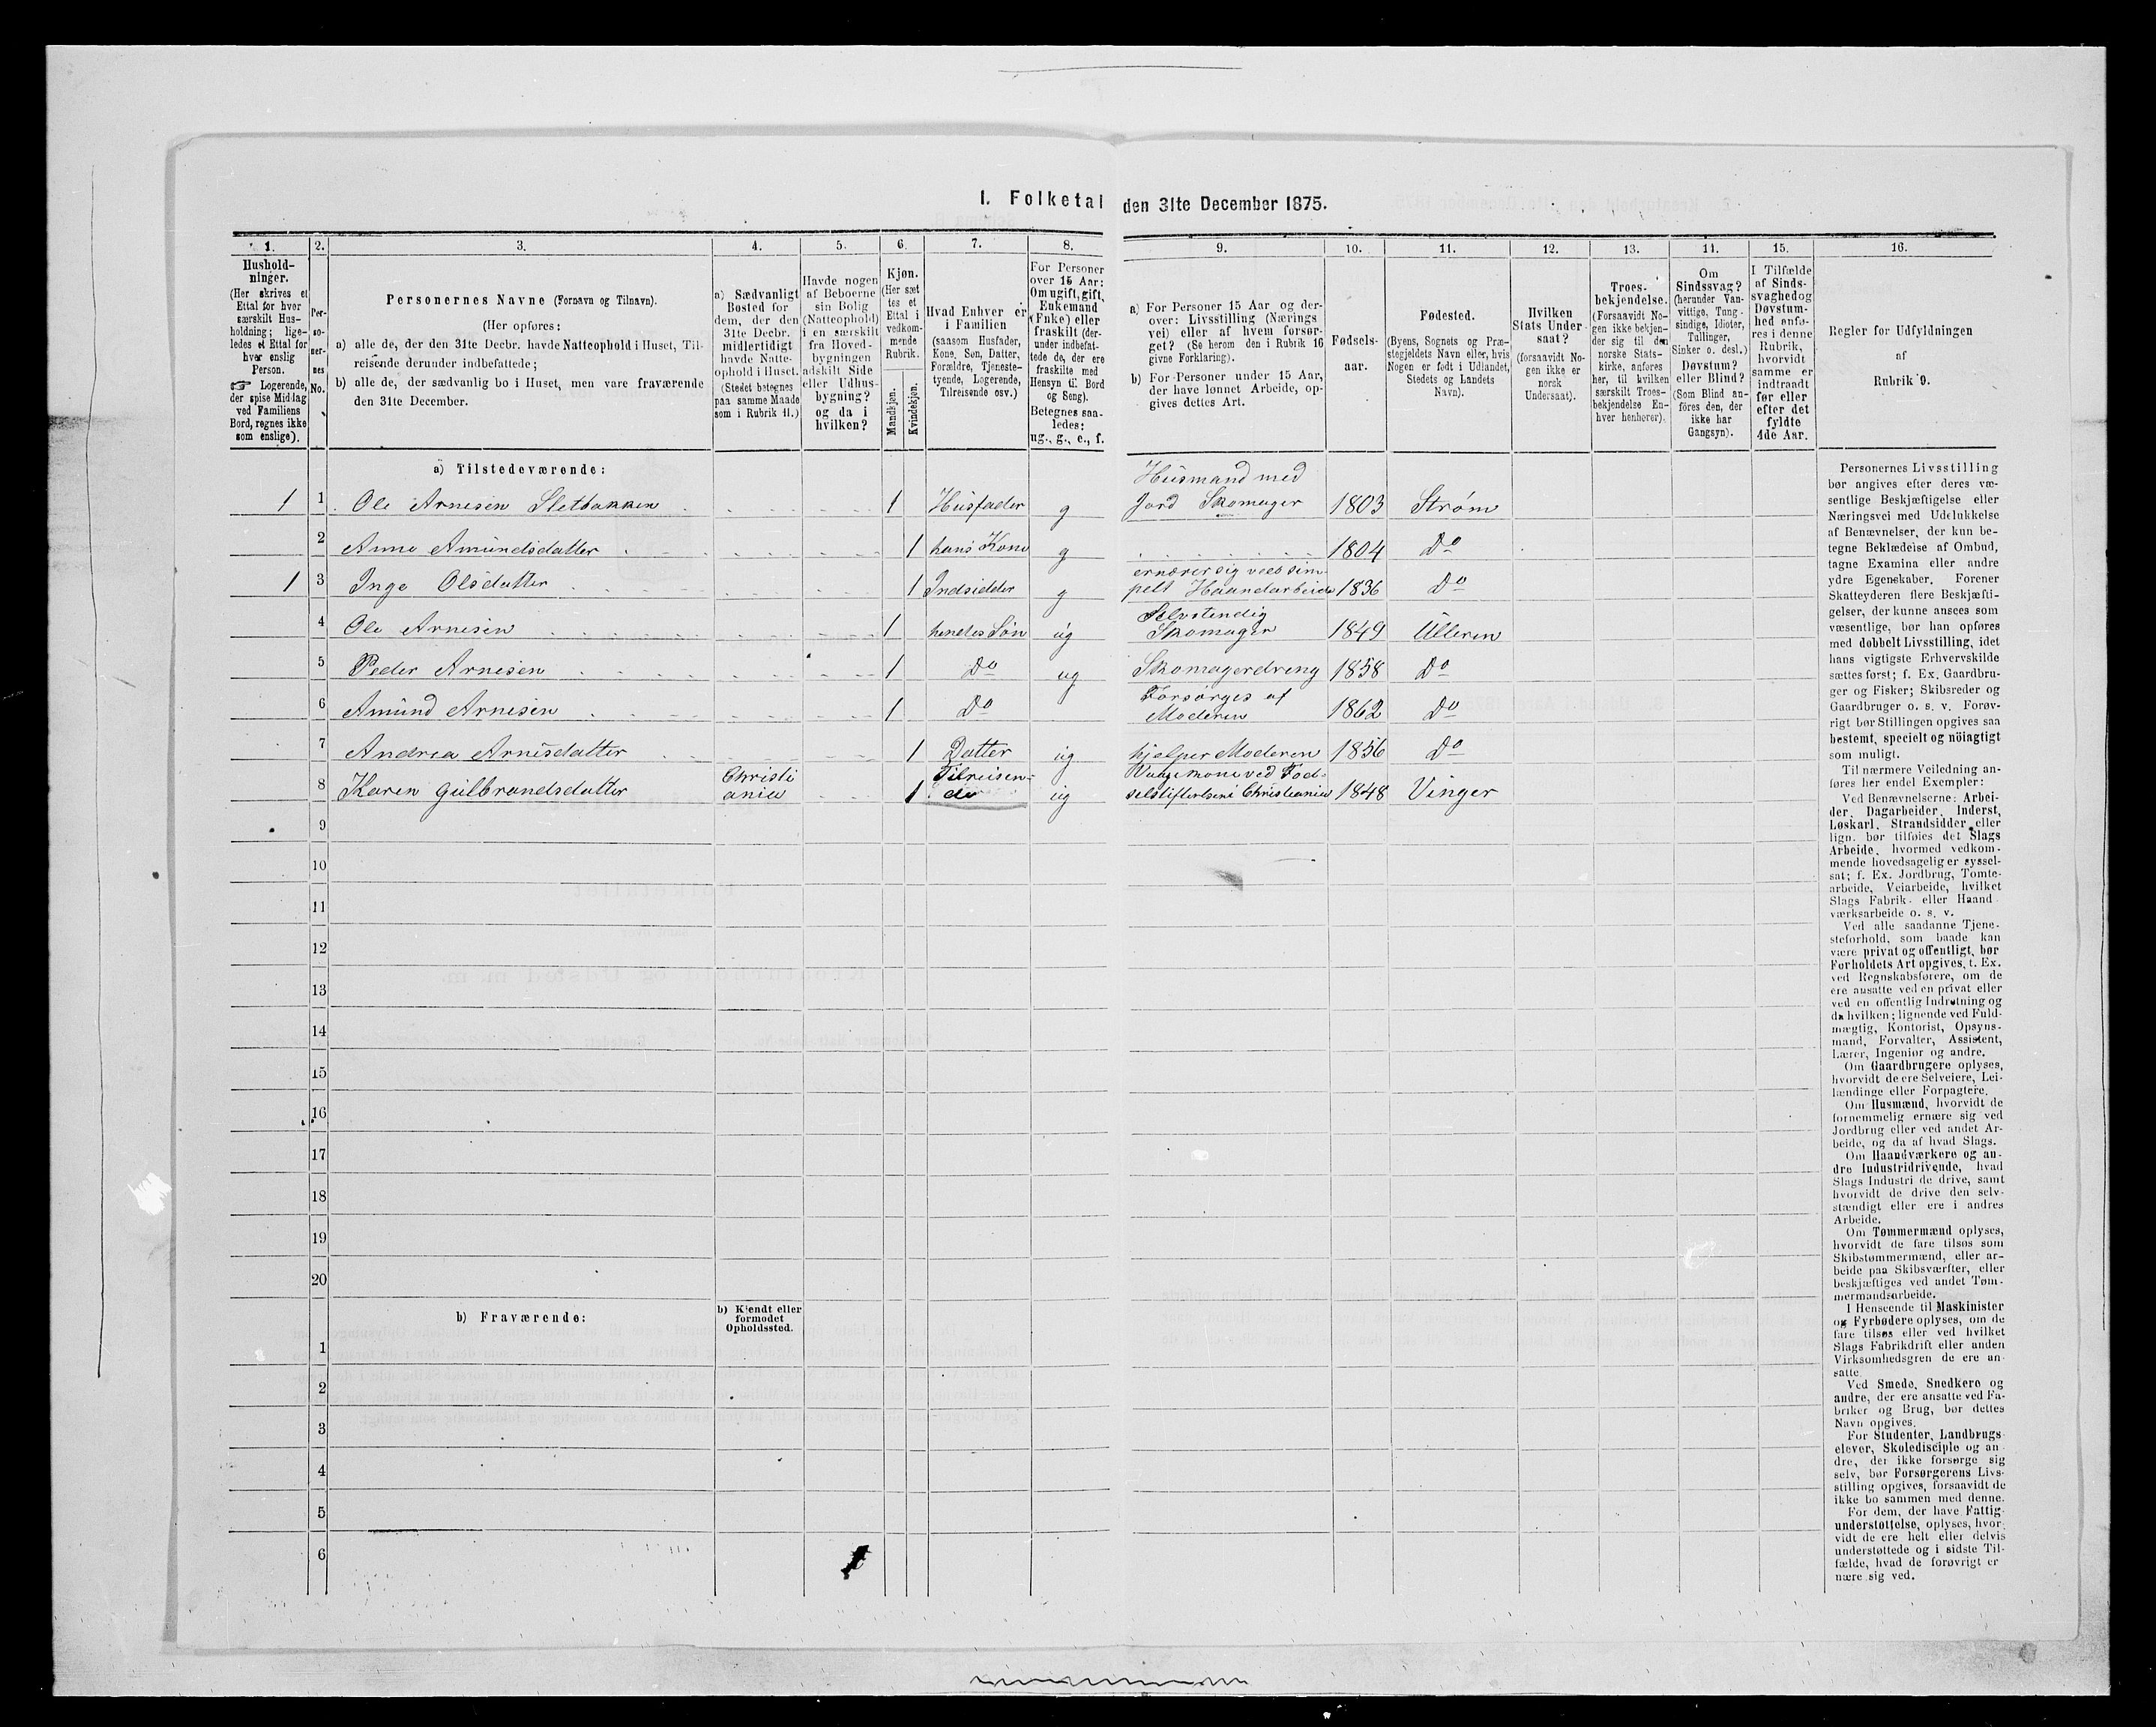 I. Folketal den 31te December 1875.
1. 2. 3. 4. 5. 6. 7. 8. 9. 10. 11. 12. 13. 14. 15. 16.
Hushold-
ninger.
(Her skrives et
Ettal for hver
særskilt Hus-
holdning; lige-
ledes et Ettal for
hver enslig
Person.
☞ Logerende,
der spise Middag
ved Familiens
Bord, regnes ikke
som enslige).
Per-
so-
ner-
nes
No.
Personernes Navne (Fornavn og Tilnavn).
(Her opføres:
a) alle de, der den 31te Decbr. havde Natteophold i Huset, Til-
reisende derunder indbefattede;
b) alle de, der sædvanlig bo i Huset, men vare fraværende
den 31te December.
a) Sædvanligt
Bosted for
dem, der den
31te Decbr.
midlertidigt
havde Natte-
ophold i Huset.
(Stedet betegnes
paa samme Maade
som i Rubrik 11.)
Havde nogen
af Beboerne
sin Bolig
(Natteophold)
i en særskilt
fra Hoved-
bygningen
adskilt Side
eller Udhus-
bygning?
og da i
hvilken?
Kjøn.
(Her sæt
tes et
Ettal i
vedkom-
mende
Rubrik.
Mandkjøn.
Kvindekjøn.
Hvad Enhver er
i Familien
(saasom Husfader,
Kone, Søn, Datter,
Forældre, Tjeneste-
tyende, Logerende,
Tilreisende osv.)
For Personer
over 15 Aar:
Om ugift, gift,
Enkemand
(Enke) eller
fraskilt (der-
under indbefat-
tede de, der ere
fraskilte med
Hensyn til Bord
og Seng).
Betegnes saa-
ledes:
ug., g., e., f.
a) For Personer 15 Aar og der-
over: Livsstilling (Nærings
vei) eller af hvem forsør-
get? (Se herom den i Rubrik 16
givne Forklaring).
b) For Personer under 15 Aar,
der have lønnet Arbeide, op-
gives dettes Art.
Fødsels-
aar.
Fødested.
(Byens, Sognets og Præ-
stegjeldets Navn eller, hvis
Nogen er født i Udlandet,
Stedets og Landets
Navn).
Hvilken
Stats Under-
saat?
(forsaavidt No-
gen ikke er
norsk
Undersaat).
Troes-
bekjendelse.
(Forsaavidt No-
gen ikke bekjen-
der sig til den
norske Stats-
kirke, anføres
her, til hvilken
særskilt Troes-
bekjendelse En-
hver henhører).
Om
Sindssvag?
(herunder Van-
vittige, Tung-
sindige, Idioter,
Tullinger,
Sinker o. desl.)
Døvstum?
eller Blind?
(Som Blind an-
føres den, der
ikke har
Gangsyn).
I Tilfælde
af Sinds-
svaghed og
Døvstum-
hed anfø-
res i denne
Rubrik,
hvorvidt
samme er
indtraadt
før eller
efter det
fyldte
4de Aar.
Regler for Udfyldningen
af
Rubrik 9.
a) Tilstedeværende:
Husmand med
1 1 Ole Arnesen Sletbakken 1 Husfader g Jord Skomager 1803 Strøm
2 Anne Amundsdatter 1 hans Kone g 1804 Do
ernærer sig ved sim-
1 3 Inge Olsdatter 1 Indsidder g pelt Haandarbeide 1836 Do
Selvstendig
4 Ole Arnesen 1 hendes Søn ug Skomager 1849 Ulleren
5 Peder Arnesen 1 Do ug Skomagerdreng 1858 Do
Forsørges af
6 Amund Arnesen 1 Do Moderen 1862 Do
7 Andrea Arnesdatter 1 Datter ug hjelper Moderen 1856 Do
Christi Tilreisen- ved Fød-
8 Karen Gulbrandsdatter ania 1 de ug selsstiftelsen i Christiania 1848 Vinger
9
10
11
12
13
14
15
16
17
18
19
20
b) Fraværende:
b) Kjendt eller
formodet
Opholdssted.
1
2
3
4
5
6
Personernes Livsstilling
bør angives efter deres væ-
sentlige Beskjæftigelse eller
Næringsvei med Udelukkelse
af Benævnelser, der kun be-
tegne Beklædelse af Ombud,
tagne Examina eller andre
ydre Egenskaber. Forener
Skatteyderen flere Beskjæfti-
gelser, der kunne ansees som
væsentlige, bør han opføres
med dobbelt Livsstilling, idet
hans vigtigste Erhvervskilde
sættes først; f. Ex. Gaardbru-
ger og Fisker; Skibsreder og
Gaardbruger o. s. v. Forøv-
rigt bør Stillingen opgives saa
bestemt, specielt og nöiagtigt
som muligt.
Til nærmere Veiledning an-
føres her endel Exempler:
Ved Benævnelserne: Arbei-
der, Dagarbeider, Inderst,
Løskarl, Strandsidder eller
lign. bør tilføies det Slags
Arbeide, hvormed vedkom-
mende hovedsagelig er syssel-
sat; f. Ex. Jordbrug, Tomte-
arbeide, Veiarbeide, hvilket
Slags Fabrik- eller Haand-
værksarbeide o. s. v.
Ved alle saadanne Tjene-
steforhold, som baade kan
være privat og offentligt, bør
Forholdets Art opgives, t. Ex.
ved Regnskabsførere, om de
ere ansatte ved en privat eller
ved en offentlig Indretning og
da hvilken; lignende ved Fuld-
mægtig, Kontorist, Opsyns-
mand, Forvalter, Assistent,
Lærer, Ingeniør og andre.
Om Gaardbrugere oplyses,
hvorvidt de ere Selveiere, Lei-
lændinge eller Forpagtere.
Om Husmænd, hvorvidt de
fornemmelig ernære sig ved
Jordbrug eller ved andet Ar-
beide, og da af hvad Slags.
Om Haandværkere og an-
dre Industridrivende, hvad
Slags Industri de drive, samt
hvorvidt de drive den selv-
stændigt eller ere i andres
Arbeide.
Om Tømmermænd oplyses,
hvorvidt de fare tilsøs som
Skibstømmermænd, eller ar-
beide paa Skibsværfter, eller
beskjæftiges ved andet Tøm-
mermandsarbeide.
I Henseende til Maskinister
og Fyrbødere oplyses, om de
fare tilsøs eller ved hvilket
Slags Fabrikdrift eller anden
Virksomhedsgren de ere an-
satte.
Ved Smede, Snedkere og
andre, der ere ansatte ved Fa-
briker og Brug, bør dettes
Navn opgives.
For Studenter, Landbrugs-
elever, Skoledisciple og an-
dre, der ikke forsørge sig
selv, bør Forsørgerens Livs-
stilling opgives, forsaavidt de
ikke bo sammen med denne.
For dem, der have Fattig-
understøttelse, oplyses, hvor-
vidt de ere helt eller delvis
understøttede og i sidste Til-
fælde, hvad de forøvrigt er
nære sig ved.